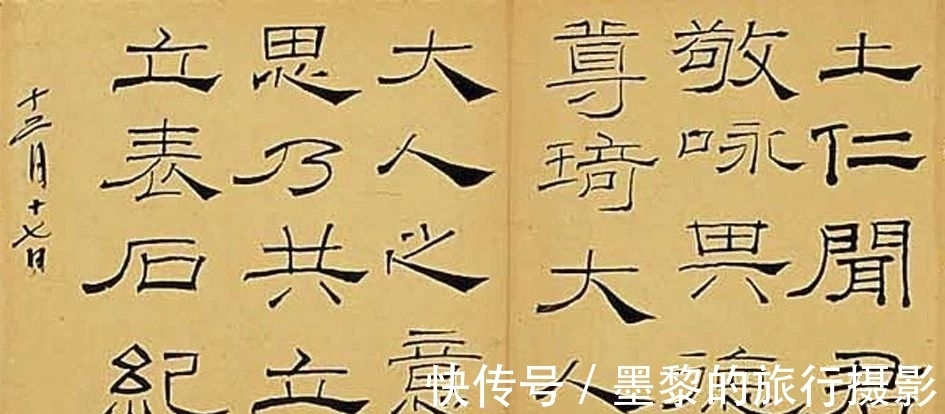 土仁聞
敬咏其
尊琦大人
大人之意
思乃共立
立表石紀
十二月十七日
快传号 / 墨黎的旅行摄影